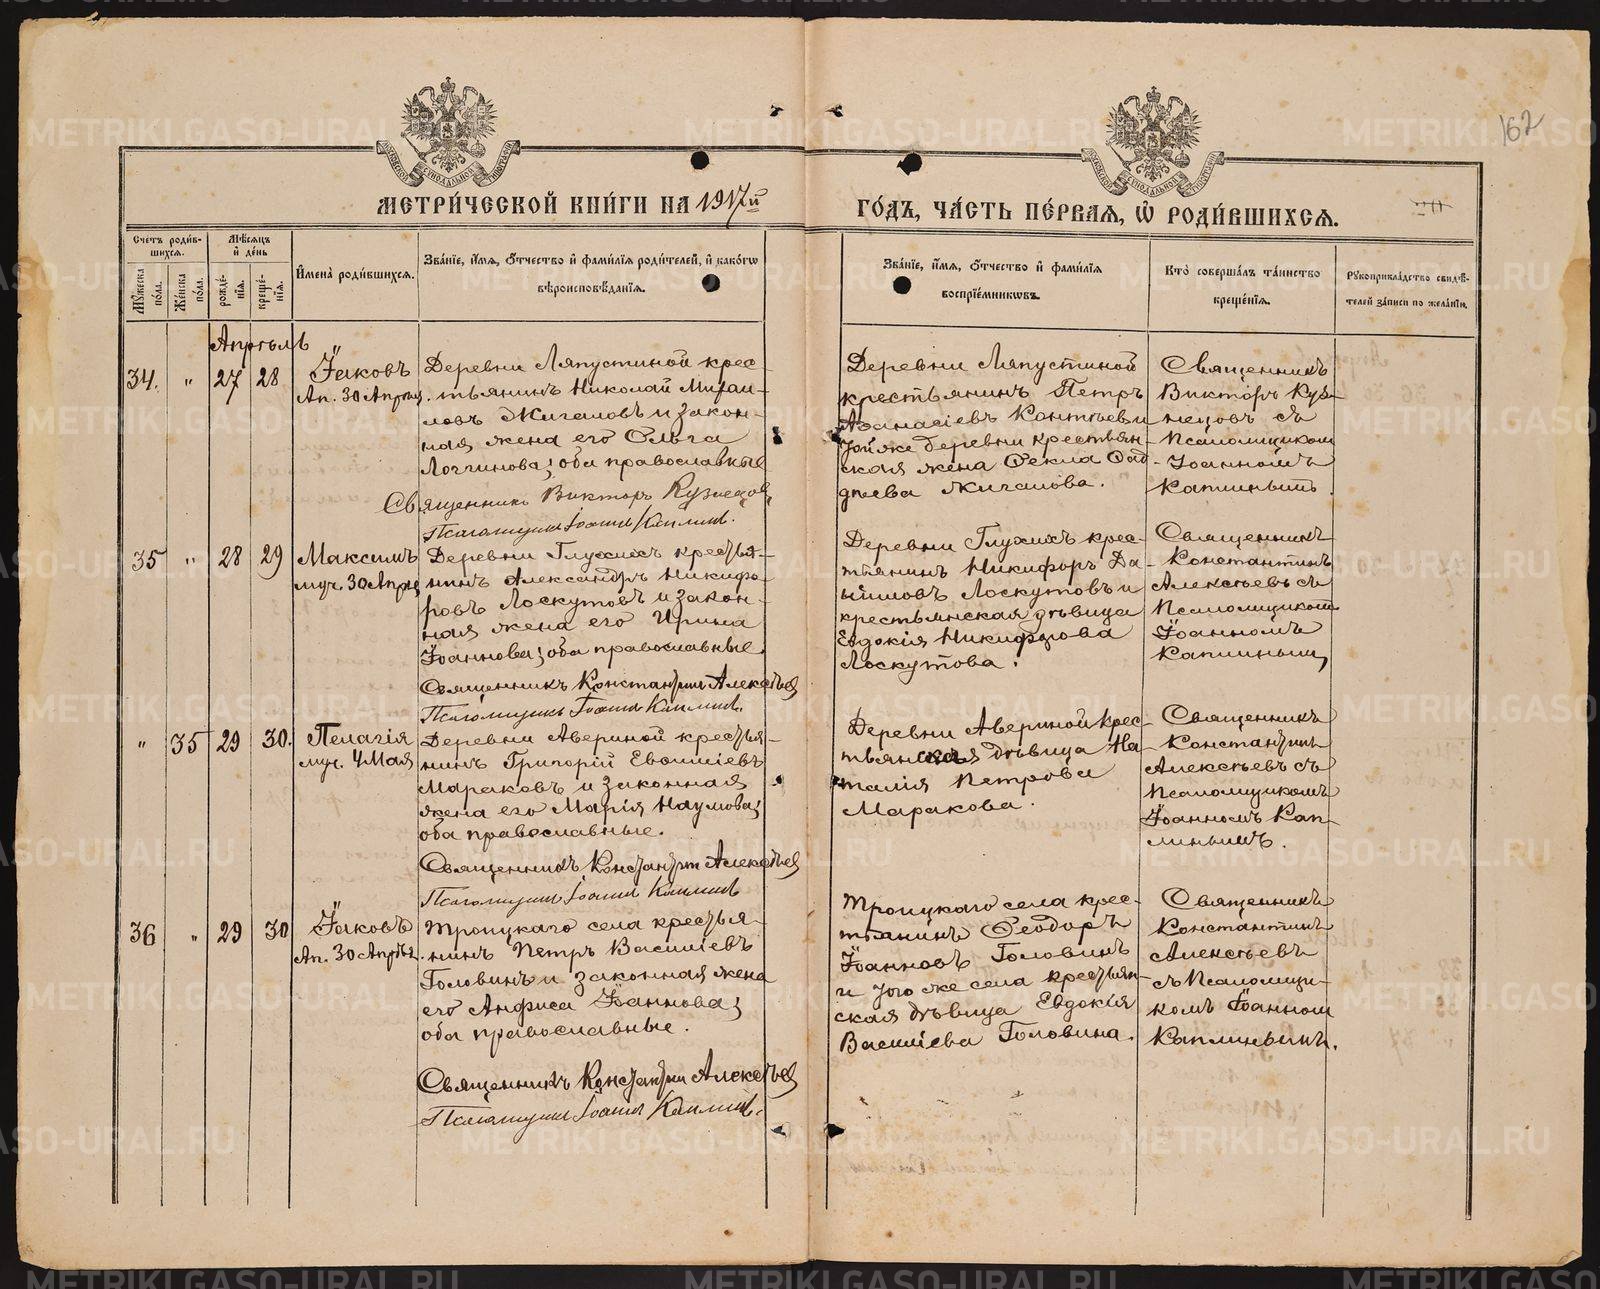 162
МЕТРИ́ЧЕСКОЙ КНИ́ГИ НА 1917й ГО́ДЪ, ЧА́СТЬ ПЕ́РВАЯ, Ѡ҆ РОДИ́ВШИХСЯ.
Счетъ роди́в-
шихся.
Мꙋжеска по́ла.
Же́нска по́ла.
Мѣ́сяцъ
и҆ де́нь
рожде́-
нїѧ.
креще́-
нїѧ.
И҆мена̀ роди́вшихся.
Зва́нїе, и҆́мѧ, ѻ҆́тчество и҆ фами́лїѧ роди́телей, и҆ како́гѡ
вѣроисповѣ́данїѧ.
Зва́нїе, и҆́мѧ, ѻ҆́тчество и҆ фами́лїѧ
воспрїе́мникѡвъ.
Кто̀ соверша́лъ та́инство
креще́нїѧ.
Рꙋкоприкла́дство свидѣ́-
телей за́писи по жела́нїю.
Апрѣль
34.
"
27
28
Іаковъ
Ап. 30 Апрѣля.
Деревни Ляпустиной крес-
тьянинъ Николай Михаи-
ловъ Жигаловъ и закон-
ная жена его Ольга
Логгинова; оба православные
Священникъ Викторъ Кузнецовъ
Псаломщикъ Іоаннъ Каплинъ.
Деревни Ляпустиной
крестьянинъ Петръ
Аѳанасіевъ Контѣевъ и
той же деревни крестьян-
ская жена Ѳекла Ѳад-
дѣева Жигалова.
Священникъ
Викторъ Куз-
нецовъ съ
Псаломщикомъ
Іоанномъ
Каплинымъ.
35
"
28
29
Максимъ
муч. 30 Апрѣля
Деревни Глухихъ крестья-
нинъ Александръ Никифо-
ровъ Лоскутовъ и закон-
ная жена его Ирина
Іоаннова; оба православные.
Священникъ Константинъ Алексѣевъ
Псаломщикъ Іоаннъ Каплинъ.
Деревни Глухихъ крес-
тьянинъ Никифоръ Да-
ниловъ Лоскутовъ и
крестьянская дѣвица
Евдокія Никифорова
Лоскутова.
Священникъ
Константинъ
Алексѣевъ съ
Псаломщикомъ
Іоанномъ
Каплинымъ,
"
35
29
30.
Пелагія
муч. 4 Мая
Деревни Авериной крестья-
нинъ Григорій Евѳиміевъ
Мараковъ и законная
жена его Марія Наумова;
оба православные.
Священникъ Константинъ Алексѣевъ
Псаломщикъ Іоаннъ Каплинъ
Деревни Авериной крес-
тьянская дѣвица На-
талія Петрова
Маракова.
Священникъ
Константинъ
Алексѣевъ съ
Псаломщикомъ
Іоанномъ Кап-
линымъ.
36
"
29
30
Іаковъ
Ап. 30 Апрѣл.
Троицкаго села крестья-
нинъ Петръ Василіевъ
Головинъ и законная жена
его Анфиса Іоаннова;
оба православные.
Священникъ Константинъ Алексѣевъ
Псаломщикъ Іоаннъ Каплинъ.
Троицкаго села крес-
тьянинъ Ѳеодоръ
Іоанновъ Головинъ
и того же села крестьян-
ская дѣвица Евдокія
Василіева Головина.
Священникъ
Константинъ
Алексѣевъ
съ Псаломщи-
комъ Іоанномъ
Каплинымъ.